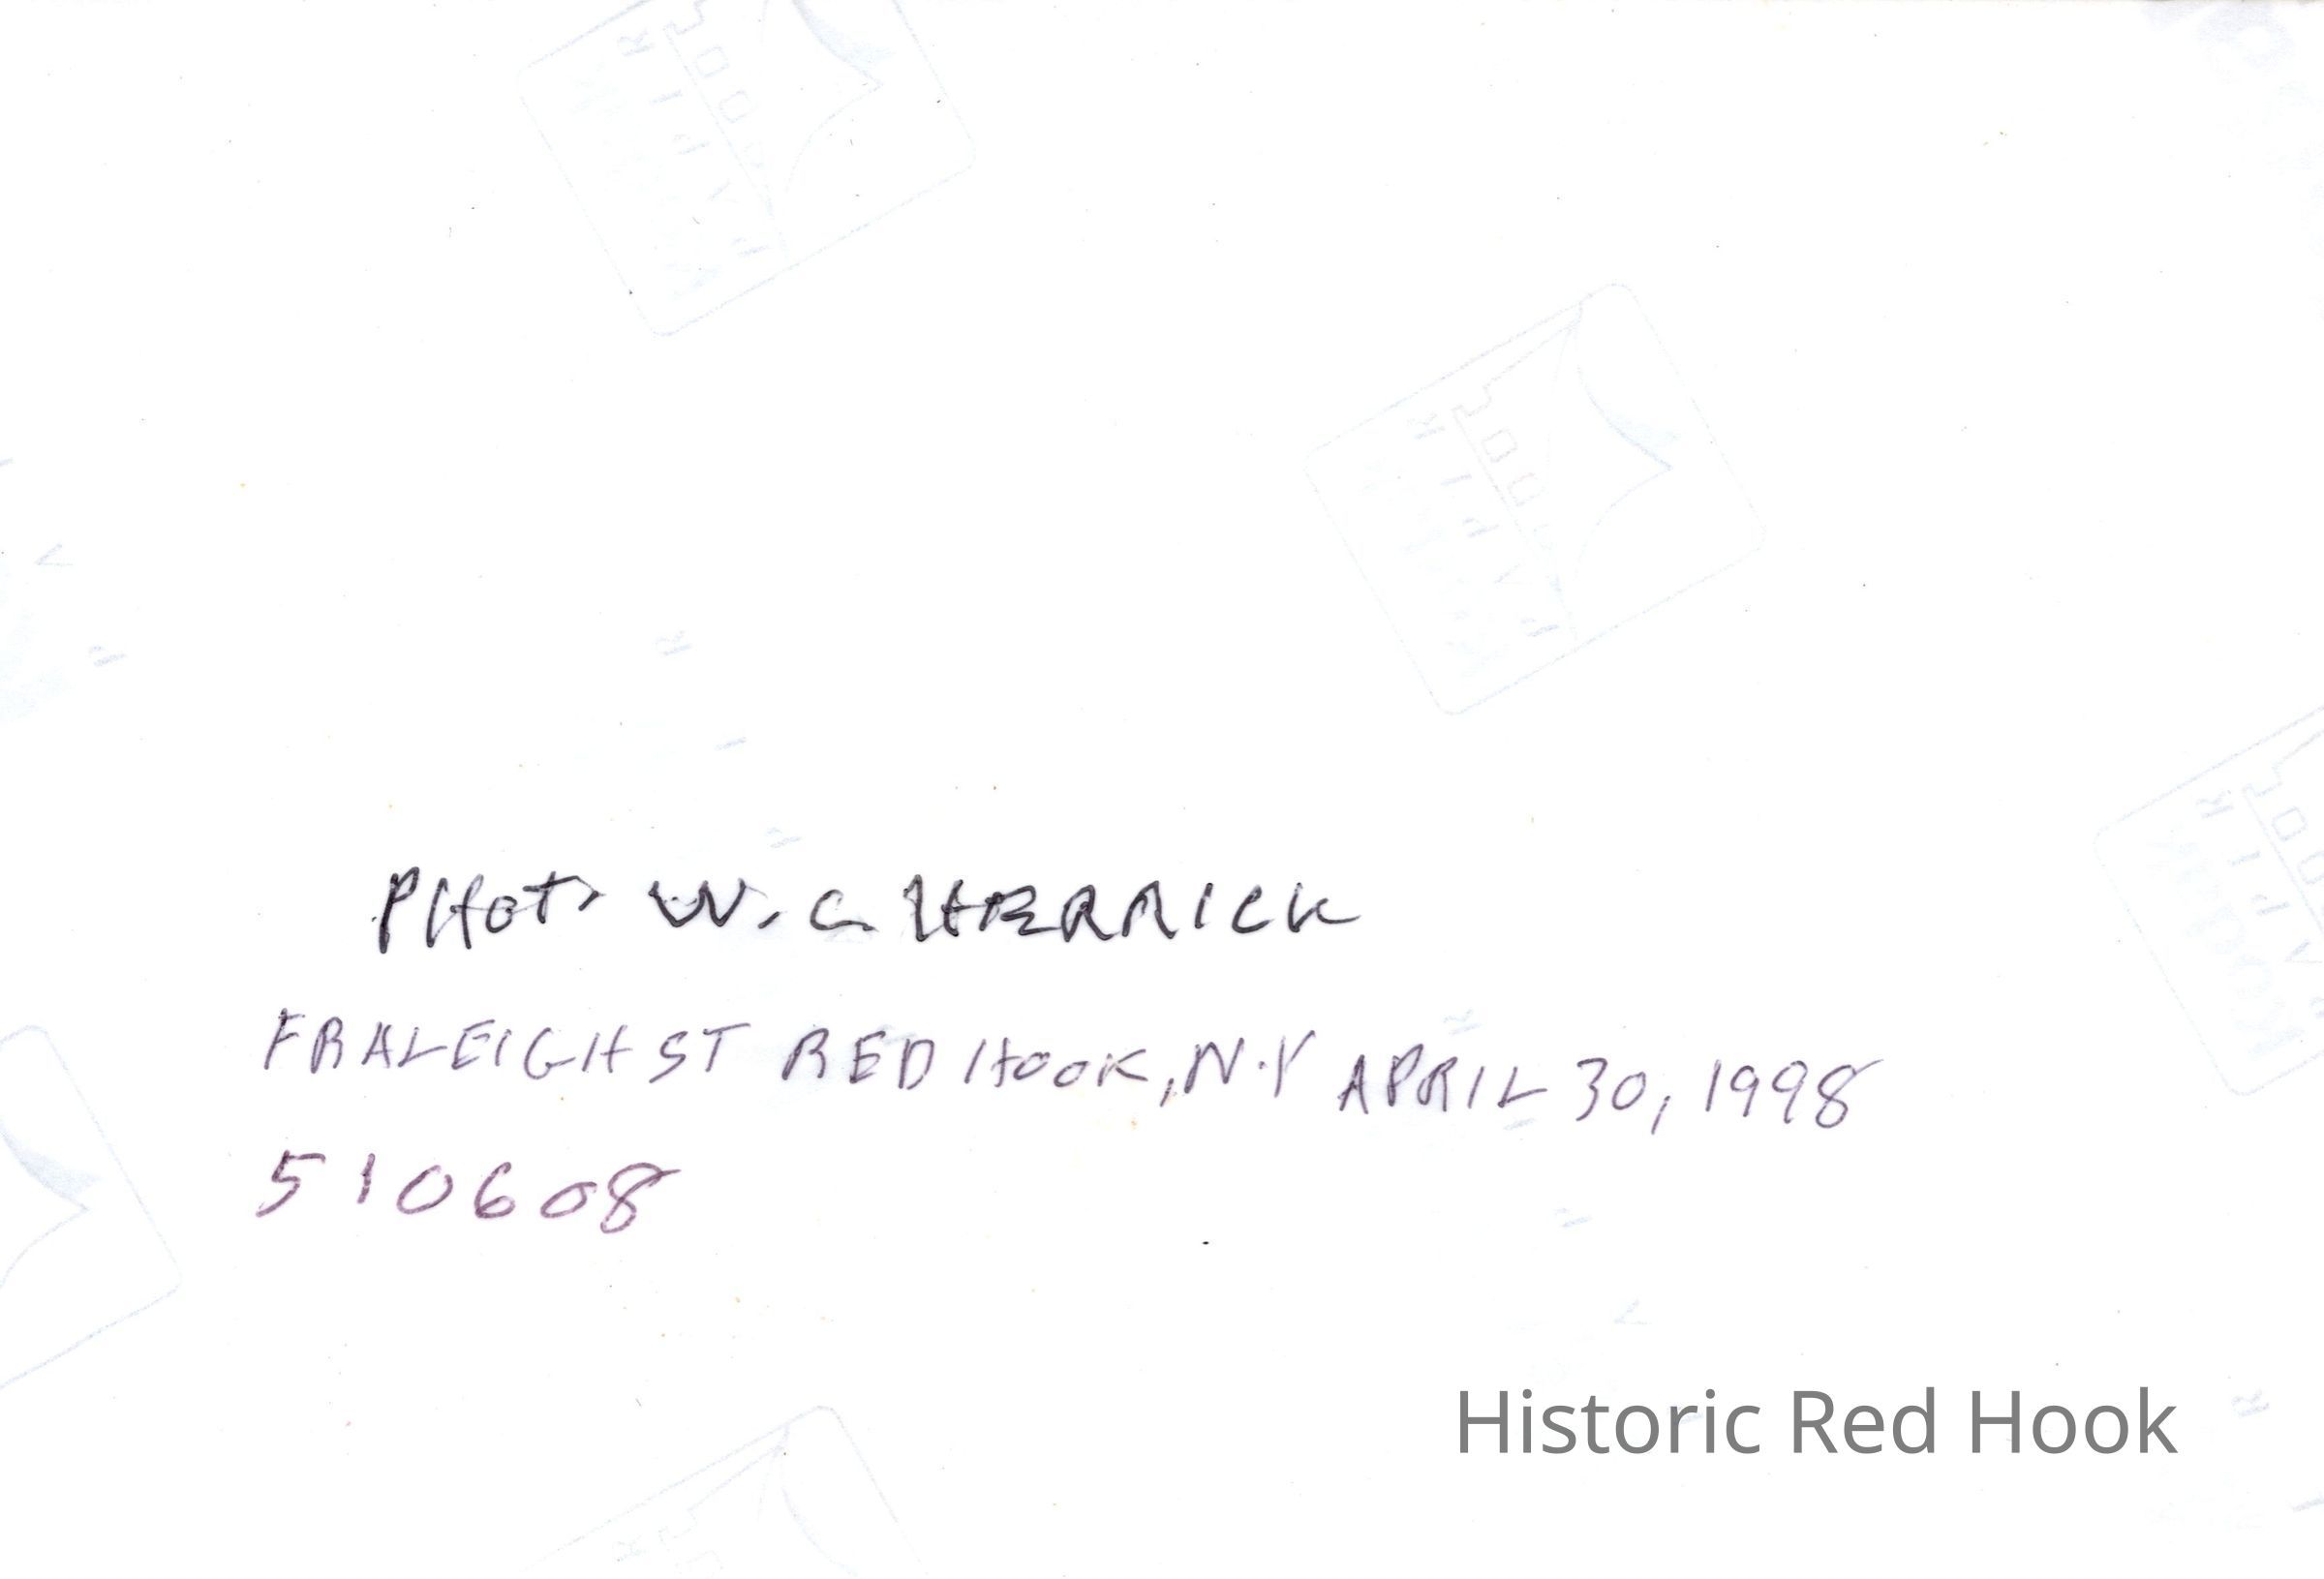 PHOT. W. C HERRICK
FRALEIGH ST RED HOOK, N.Y APRIL 30, 1998
510608
Historic Red Hook